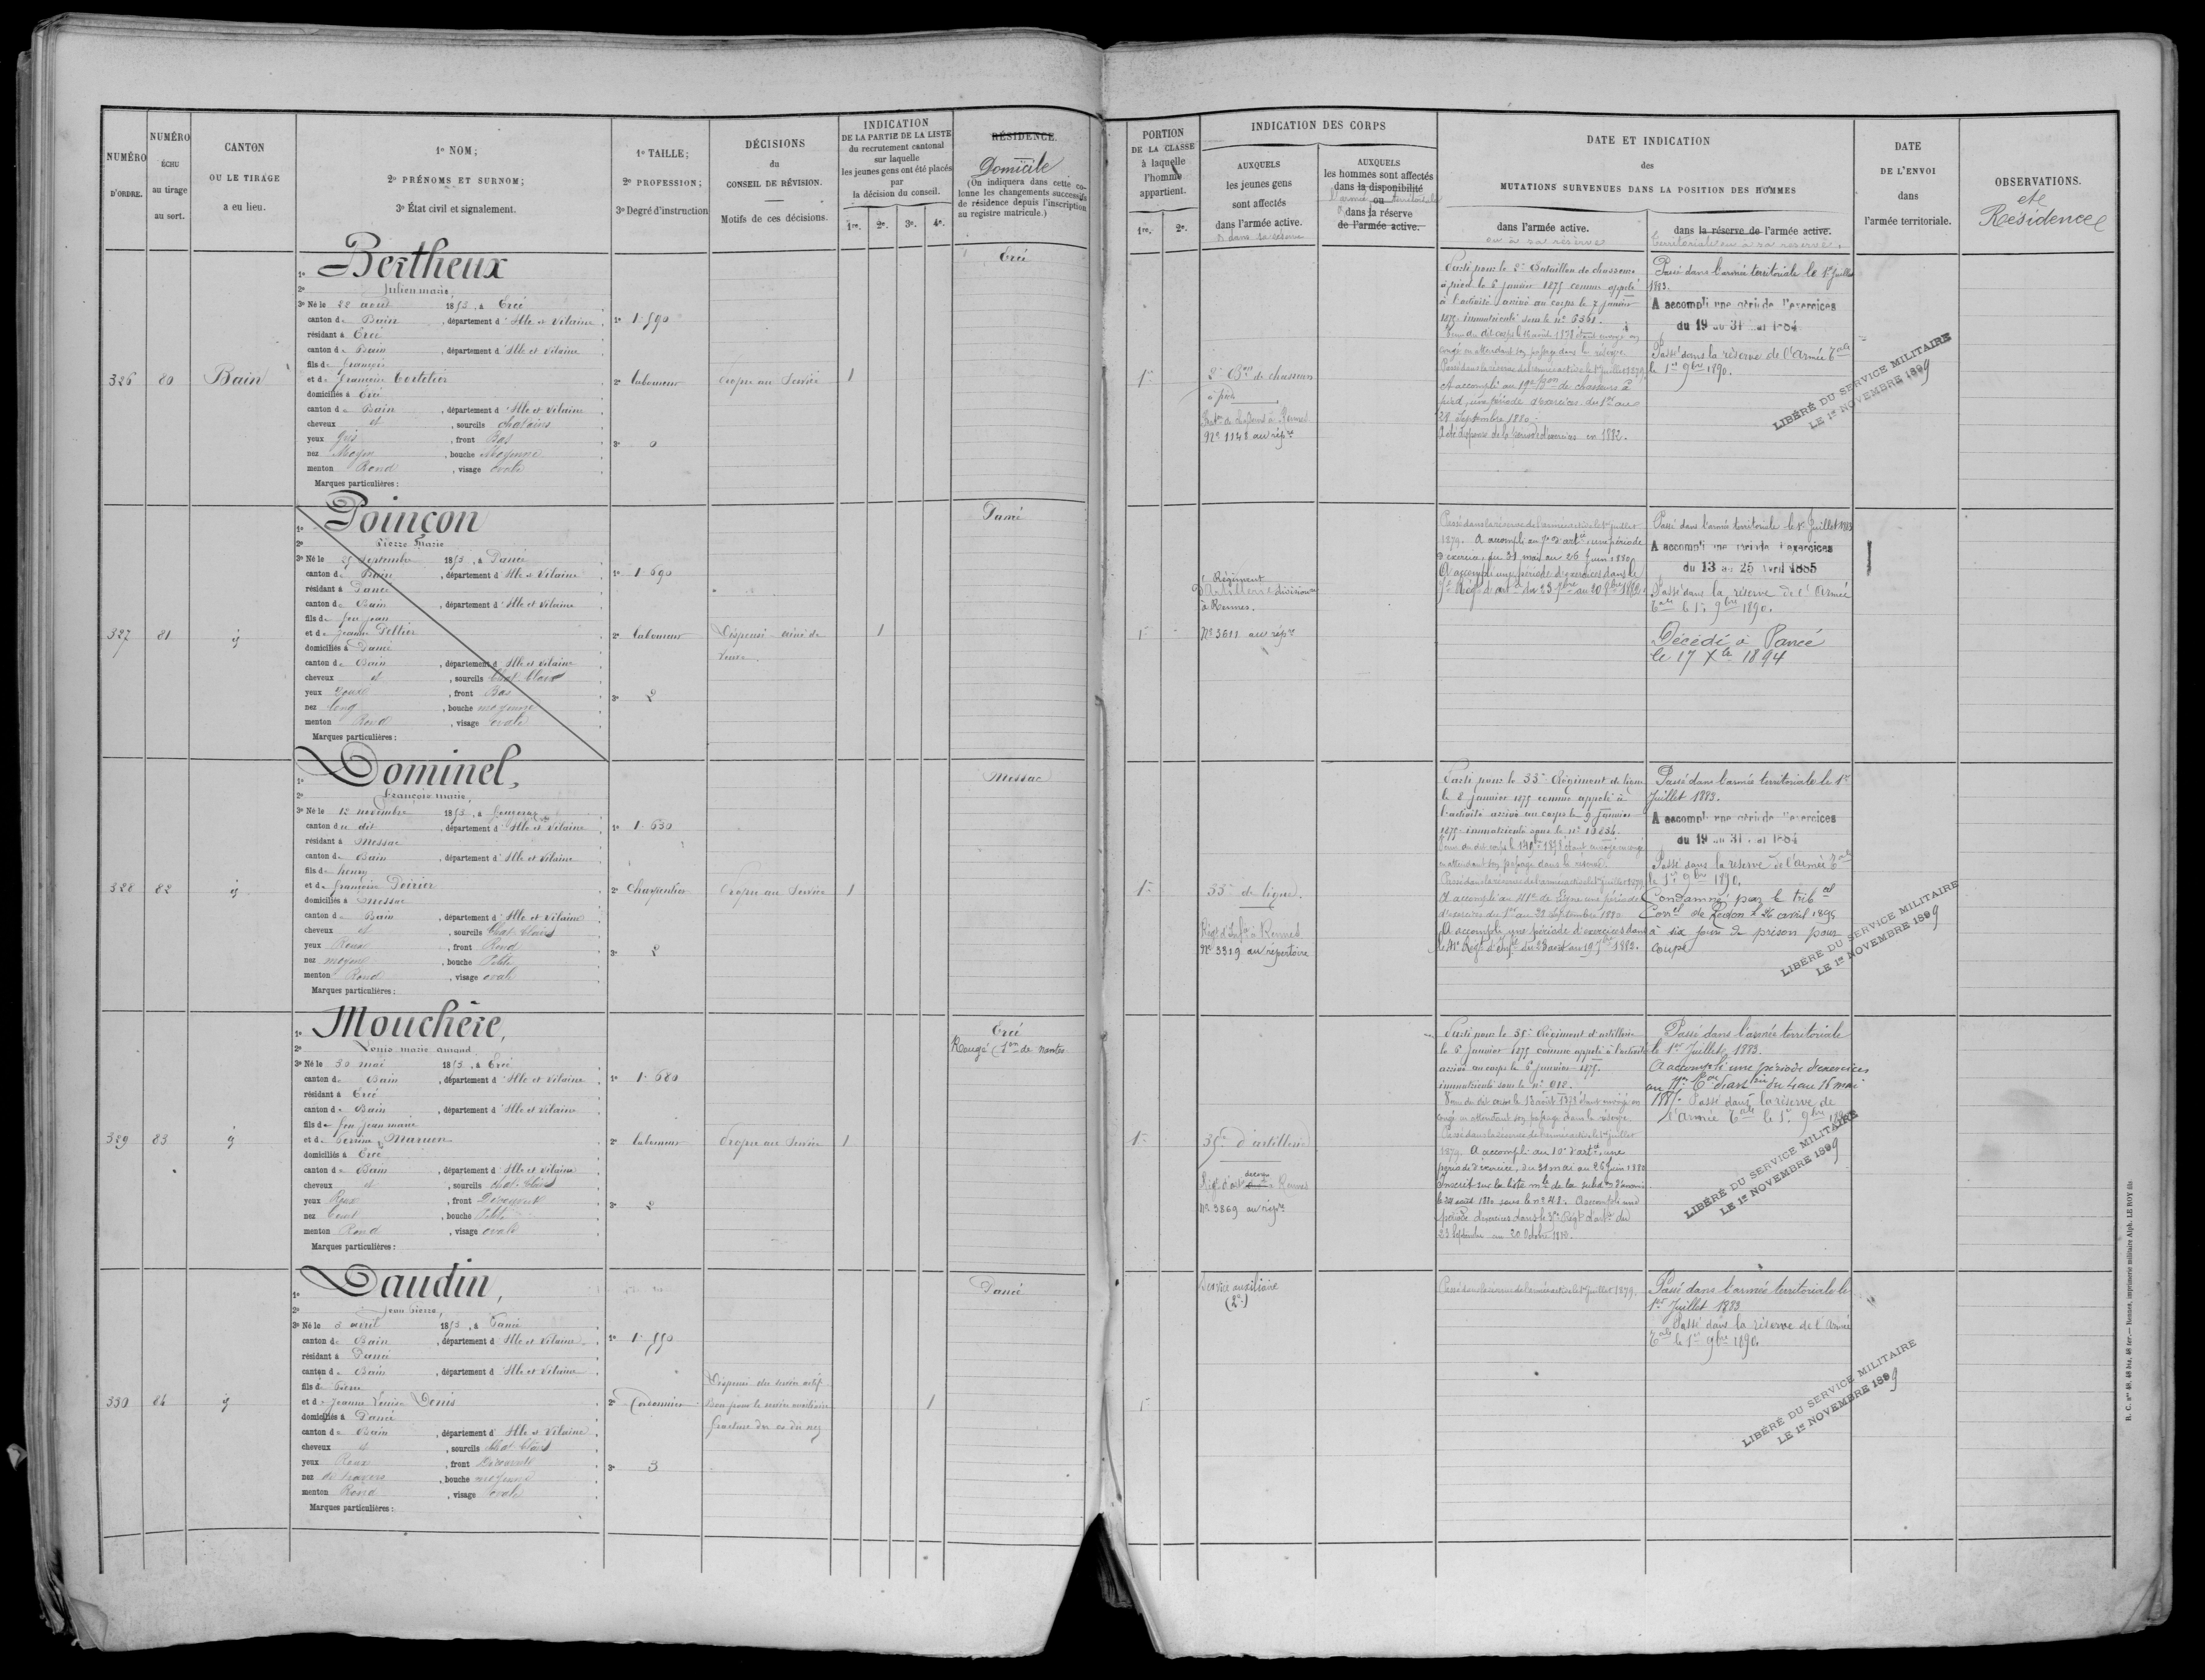 NUMÉRO
D'ORDRE.
NUMÉRO
ÉCHU
au tirage
au sort.
CANTON
OU LE TIRAGE
a eu lieu.
1º NOM;
2º PRÉNOMS ET SURNOM;
3º État civil et signalement.
1º TAILLE;
2º PROFESSION;
3º Degré d'instruction
DÉCISIONS
du
CONSEIL DE RÉVISION.
Motifs de ces décisions.
INDICATION
DE LA PARTIE DE LA LISTE
du recrutement cantonal
sur laquelle
les jeunes gens ont été placés
par
la décision du conseil.
1re. 2e. 3e. 4e.
RÉSIDENCE.
Domicile
(On indiquera dans cette co-
lonne les changements successifs
de résidence depuis l'inscription
au registre matricule.)
PORTION
DE LA CLASSE
à laquelle
l'homme
appartient.
1re. 2e.
INDICATION DES CORPS
AUXQUELS
les jeunes gens
sont affectés
dans l'armée active.
AUXQUELS
les hommes sont affectés
dans la disponibilité
ou
dans la réserve
de l'armée active.
DATE ET INDICATION
des
MUTATIONS SURVENUES DANS LA POSITION DES HOMMES
dans l'armée active.
ou à sa réserve
dans la réserve de l'armée active.
territoriale ou à sa reserve.
DATE
DE L'ENVOI
dans
l'armée territoriale.
OBSERVATIONS.
et
Résidence
326
80
Bain
1º Bertheux
2º Julien marie
3º Né le 22 aout 1853, à Ercé
canton de Bain, département d'Ille et Vilaine
résidant à Ercé
canton de Bain, département d'Ille et Vilaine
fils de François
et de françoise
domiciliés à Ercé
canton de Bain, département d'Ille et Vilaine
cheveux et, sourcils chatains
yeux gris, front Bas
nez Moyen, bouche Moyenne
menton Rond, visage ovale
Marques particulières:
1º 1.590
2º laboureur
3º 0
Propre au Service
1
Ercé
1re
2e Bon de chasseurs
à pied
Nº 1148 au répre
Parti pour le 2e Bataillon de chasseurs
à pied le 6 janvier 1875 comme appelé
à l'activité arrivé au corps le 7 janvier
1875 immatriculé sous le nº 6361.
congé en attendant son passage dans la réserve
Passé dans la réserve de l'armée active le 1er juillet 1879.
A accompli au 19e Bon de chasseurs à
pied, une période d'exercices du 1er au
28 Septembre 1880.
A été dispensé de la période d'exercices en 1882.
Passé dans l'armée territoriale le 1er Juillet
1883.
A accompli une période d'exercices
du 19 au 31 mai 1884
Passé dans la réserve de l'armée Tale
le 1er 9bre 1890.
LIBÉRÉ DU SERVICE MILITAIRE
LE 1er NOVEMBRE 1899
327
81
1º Poinçon
2º Pierre Marie
3º Né le 25 Septembre 1853, à Pancé
canton de Bain, département d'Ille et Vilaine
résidant à Pancé
canton de Bain, département d'Ille et Vilaine
fils de feu Jean
et de Jeanne Peltier
domiciliés à Pancé
canton de Bain, département d'Ille et Vilaine
cheveux et, sourcils Chat. Clairs
yeux, front Bas
nez long, bouche moyenne
menton Rond, visage ovale
Marques particulières:
1º 1.690
2º laboureur
3º 2
Dispensé ainé de
veuve.
1
Pancé
1re
Régiment
d'Artillerie divisionre
à Rennes.
Nº 3611 au répre
Passé dans la réserve de l'armée active le 1er juillet
1879. A accompli au 7e d'artie, une période
d'exercices, du 31 mai au 26 juin 1880
A accompli une période d'exercices dans le
Passé dans l'armée territoriale le 1er Juillet 1883
A accompli une période d'exercices
du 13 au 25 Avril 1885
Passé dans la réserve de l'Armée
Tale le 1er 9bre 1890.
Décédé à Pancé
le 17 Xbre 1894
328
82
1º Dominel,
2º François marie,
3º Né le 12 novembre 1853, à
canton du dit, département d'Ille et Vilaine
résidant à Messac
canton de Bain, département d'Ille et Vilaine
fils de henry
et de françoise Poirier
domiciliés à Messac
canton de Bain, département d'Ille et Vilaine
cheveux et, sourcils Chat. Clairs
yeux Roux, front Rond
nez moyen, bouche Petite
menton Rond, visage ovale
Marques particulières:
1º 1.630
2º Charpentier
3º 2
Propre au Service
1
Messac
1re
33e de ligne.
Régt d'Infie à Rennes
Nº 3319 au répertoire
Parti pour le 33e Régiment de ligne
le 8 janvier 1875 comme appelé à
l'activité arrivé au corps le 9 janvier
1875 immatriculé sous le nº
en attendant son passage dans la réserve.
Passé dans la réserve de l'armée active le 1er juillet 1879
A accompli au 41e de Ligne une période
d'exercices du 1er au 28 Septembre 1880
A accompli une période d'exercices dans
Passé dans l'armée territoriale le 1er
Juillet 1883.
A accompli une période d'exercices
du 19 au 31 mai 1884
Passé dans la reserve de l'armée Tale
le 1er 9bre 1890.
Condamné par le tribal
Correl de Redon le 26 avril 1895
à six jours de prison pour
coups
LIBÉRÉ DU SERVICE MILITAIRE
LE 1er NOVEMBRE 1899
329
83
1º Mouchère,
2º Louis marie amand
3º Né le 30 mai 1853, à Ercé
canton de Bain, département d'Ille et Vilaine
résidant à Ercé
canton de Bain, département d'Ille et Vilaine
fils de feu Jean marie
et de Perrine Maruen
domiciliés à Ercé
canton de Bain, département d'Ille et Vilaine
cheveux et, sourcils chat. Clairs
yeux Roux, front Découvert
nez, bouche Petite
menton Rond, visage ovale
Marques particulières:
1º 1.680
2º laboureur
3º 2
Propre au Service
1
Ercé
Rougé (Son de nantes
1re
35e d'artillerie
Nº 3869 au répre
Parti pour le 35e Régiment d'artillerie
le 6 janvier 1875 comme appelé à l'activité
arrivé au corps le 6 janvier 1875.
immatriculé sous le nº 612.
congé en attendant son passage dans la réserve
Passé dans la réserve de l'armée active le 1er juillet
1879. A accompli au 10e d'artie, une
période d'exercices, du 31 mai au 26 Juin 1880
Inscrit sur la liste mle de la subdon d'Ancenis
le 24 août 1880 sous le nº 48. A accompli une
période d'exercices dans le Régt d'artie du
23 Septembre au 20 Octobre 1882.
Passé dans l'armée territoriale
le 1er Juillet 1883.
A accompli une période d'exercices
du 4 au 16 mai
1885. Passé dans la réserve de
l'Armée Tale le 1er 9bre 1890
LIBÉRÉ DU SERVICE MILITAIRE
LE 1er NOVEMBRE 1899
330
84
1º Daudin,
2º Jean Pierre,
3º Né le 3 avril 1853, à Pancé
canton de Bain, département d'Ille et Vilaine
résidant à Pancé
canton de Bain, département d'Ille et Vilaine
fils de Pierre
et de Jeanne Louise Denis
domiciliés à Pancé
canton de Bain, département d'Ille et Vilaine
cheveux et, sourcils Chat. Clairs
yeux Roux, front Découvert
nez de travers, bouche moyenne
menton Rond, visage ovale
Marques particulières:
1º 1.550
2º Cordonnier
3º 3
Dispensé du service actif
Bon pour le service auxiliaire
fracture des os du nez
1
Pancé
1re
Service auxiliaire
(2e)
Passé dans la réserve de l'armée active le 1er juillet 1879.
Passé dans l'armée territoriale le
1er Juillet 1883
Passé dans la réserve de l'Armée
Tale le 1er 9bre 1890.
LIBÉRÉ DU SERVICE MILITAIRE
LE 1er NOVEMBRE 1899
R. C. nos 48, 48 bis, 48 ter. — Rennes, imprimerie militaire Alph. LE ROY fils